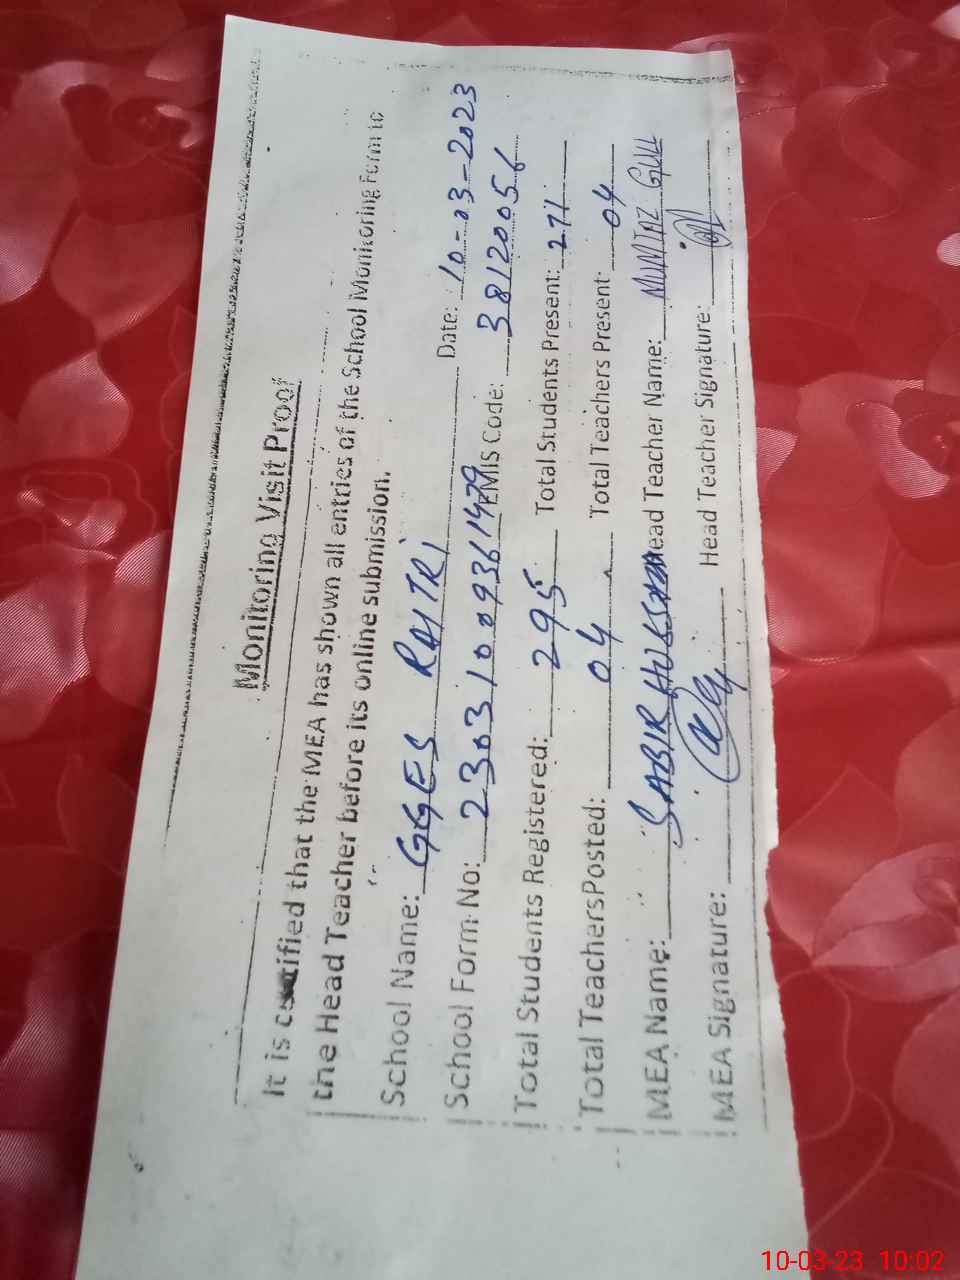 Monitoring Visit Proof
It is certified that the MEA has shown all entries of the School Monitoring Form to
the Head Teacher before its online submission.
School Name: GGES RAITRI Date: 10-03-2023
School Form No: 23031009361479 EMIS Code: 38120056
Total Students Registered: 295 Total Students Present: 271
Total TeachersPosted: 04 Total Teachers Present: 04
MEA Name: SABIR HUSSAIN Head Teacher Name: MUMTAZ GULL
MEA Signature: Head Teacher Signature:
10-03-23 10:02